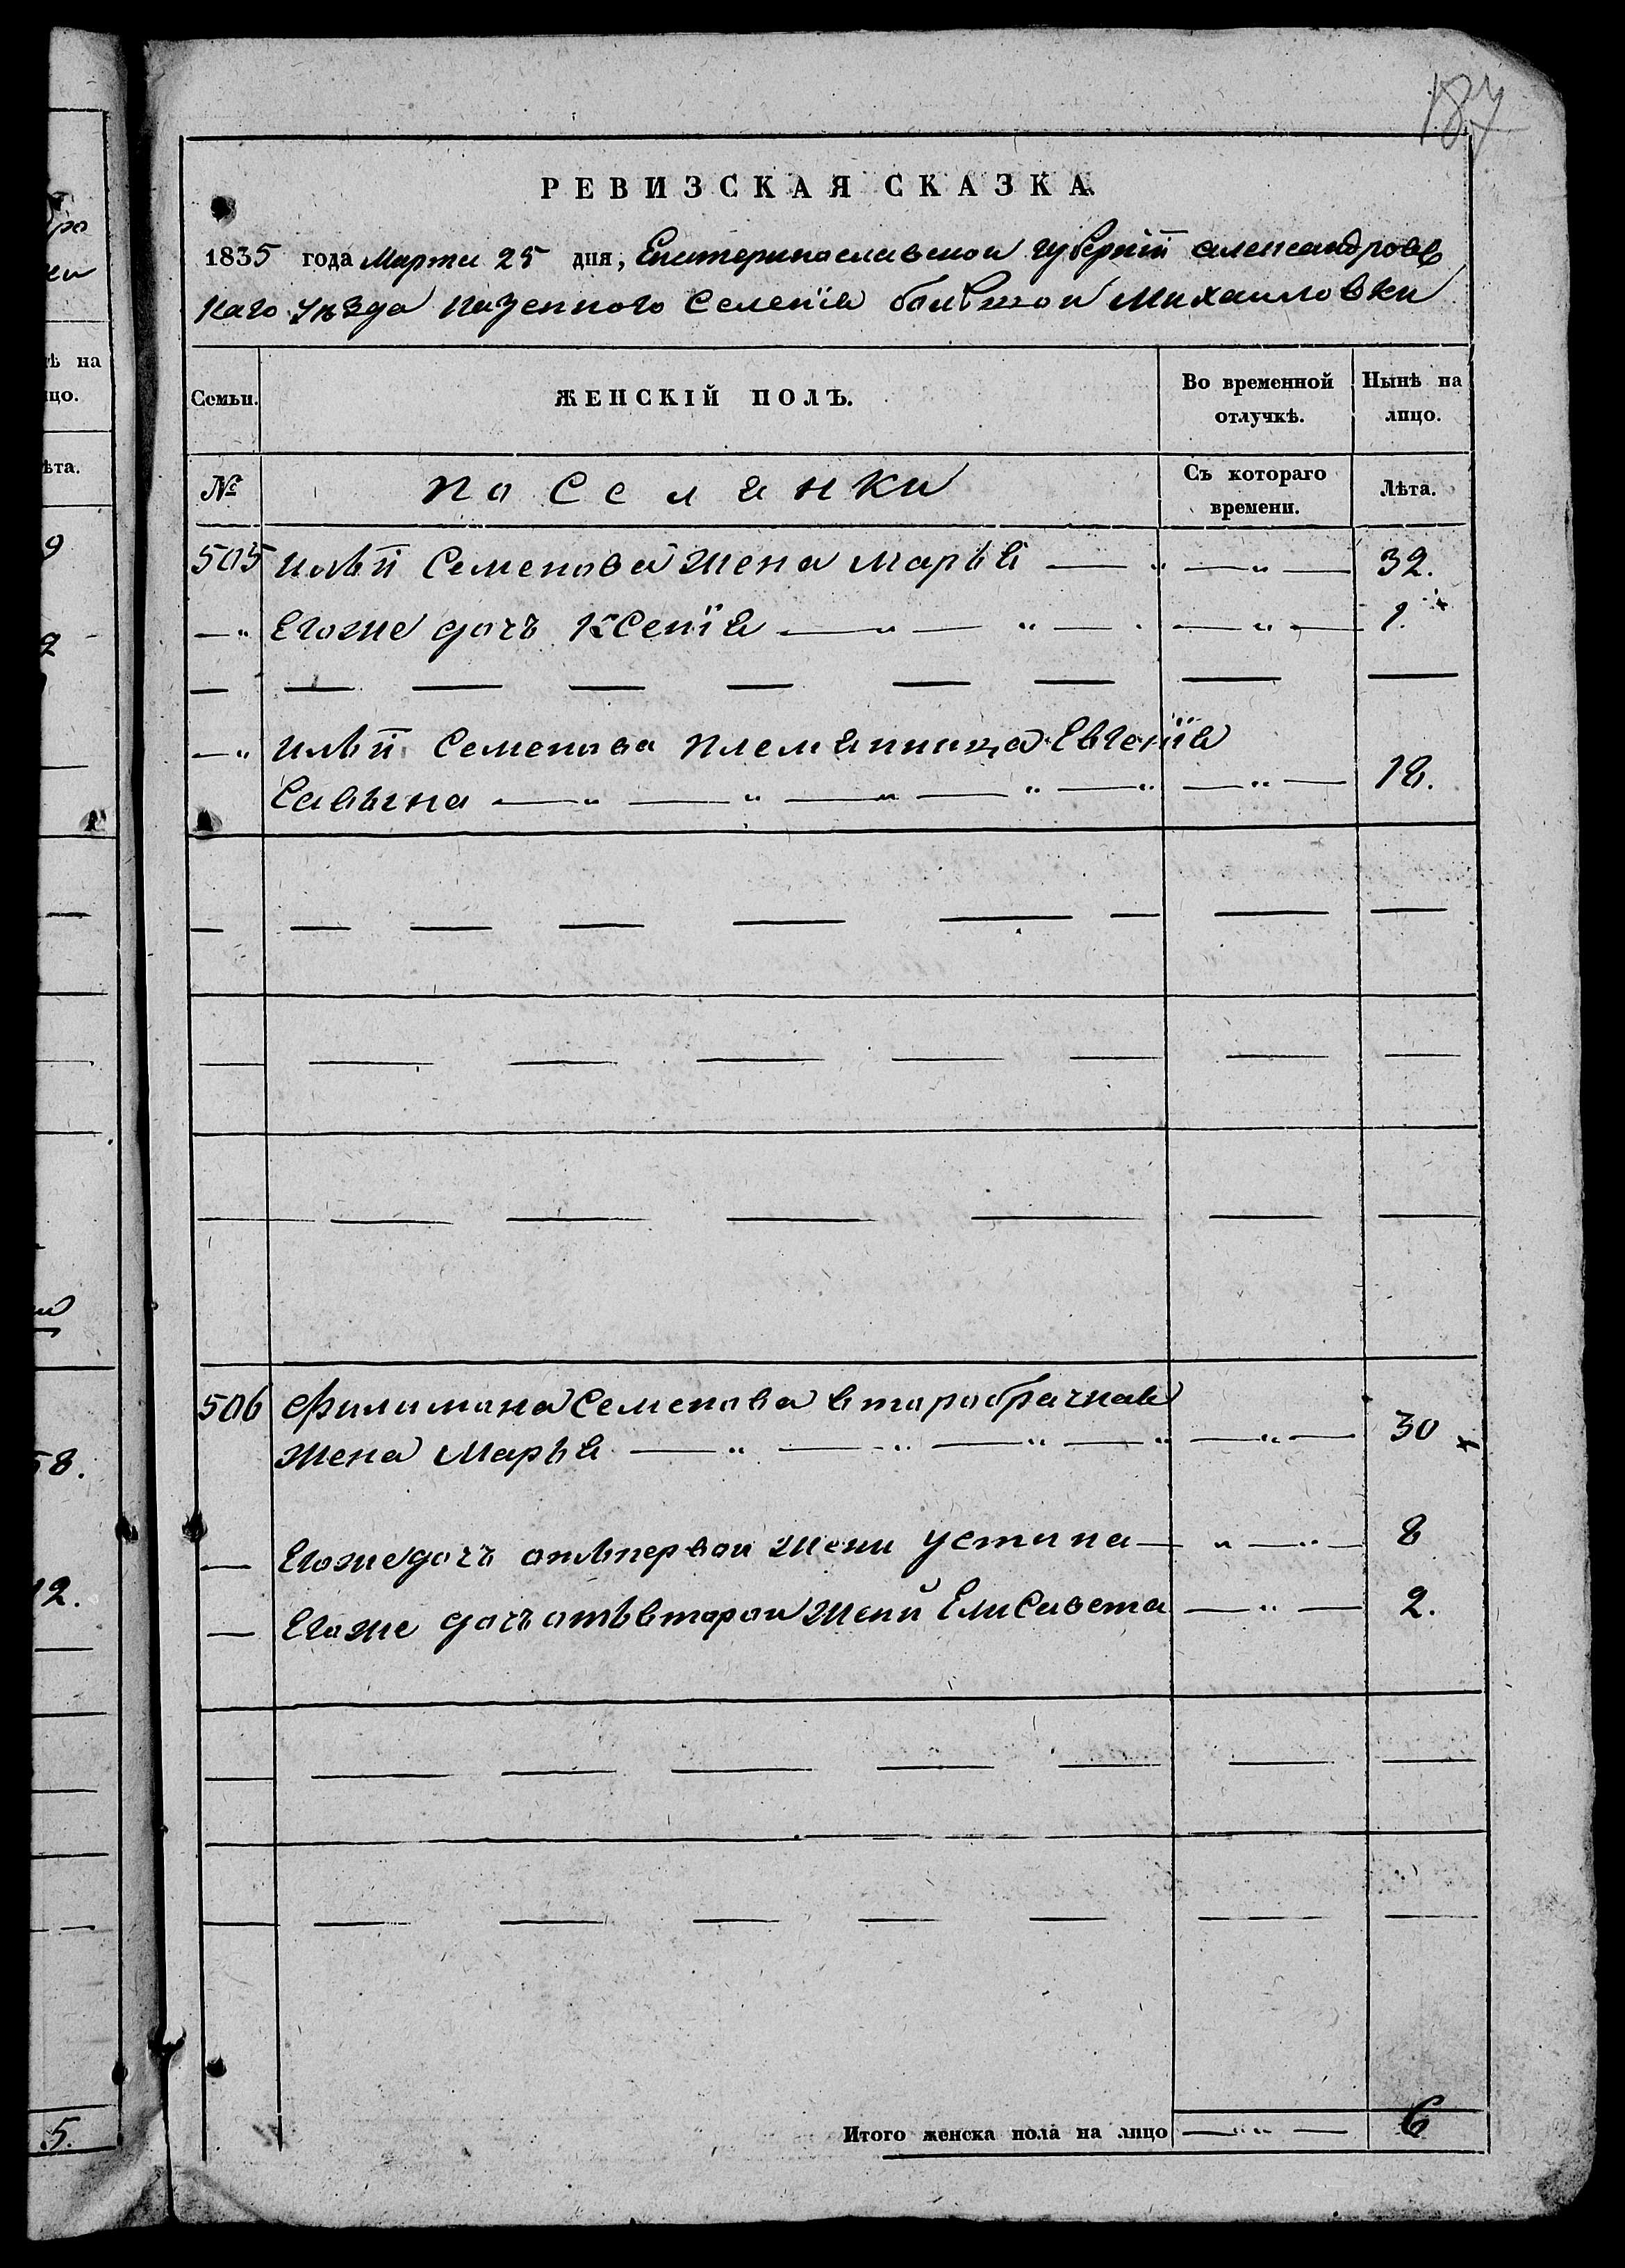 187
РЕВИЗСКАЯ СКАЗКА.
1835 года Марта 25 дня, Екатеринославской губернїи Александровс
каго уѣзда казенного селенїя большой Михайловки
Семьи. ЖЕНСКІЙ ПОЛЪ. Во временной отлучкѣ. Нынѣ на лицо.
№ поселянки Съ котораго времени. Лѣта.
505 Ильи Семенова жена Марья — " — " — 32.
— " Егоже дочь Ксенїя — " — " — — " — 1.
— " Ильи Семенова племянница Евгенїя
Савына — " — " — " — " — " — " — 18.
506 Филимона Семенова второбрачная
жена Марья — " — " — " — " — " — 30
— Егоже дочь отъ первой жены Устина — " — " — 8
— Егоже дочь отъ второй жены Елисавета — " — 2.
Итого женска пола на лицо — " " — 6
ѣ на
цо.
ѣта.
9
2
58.
12.
5.